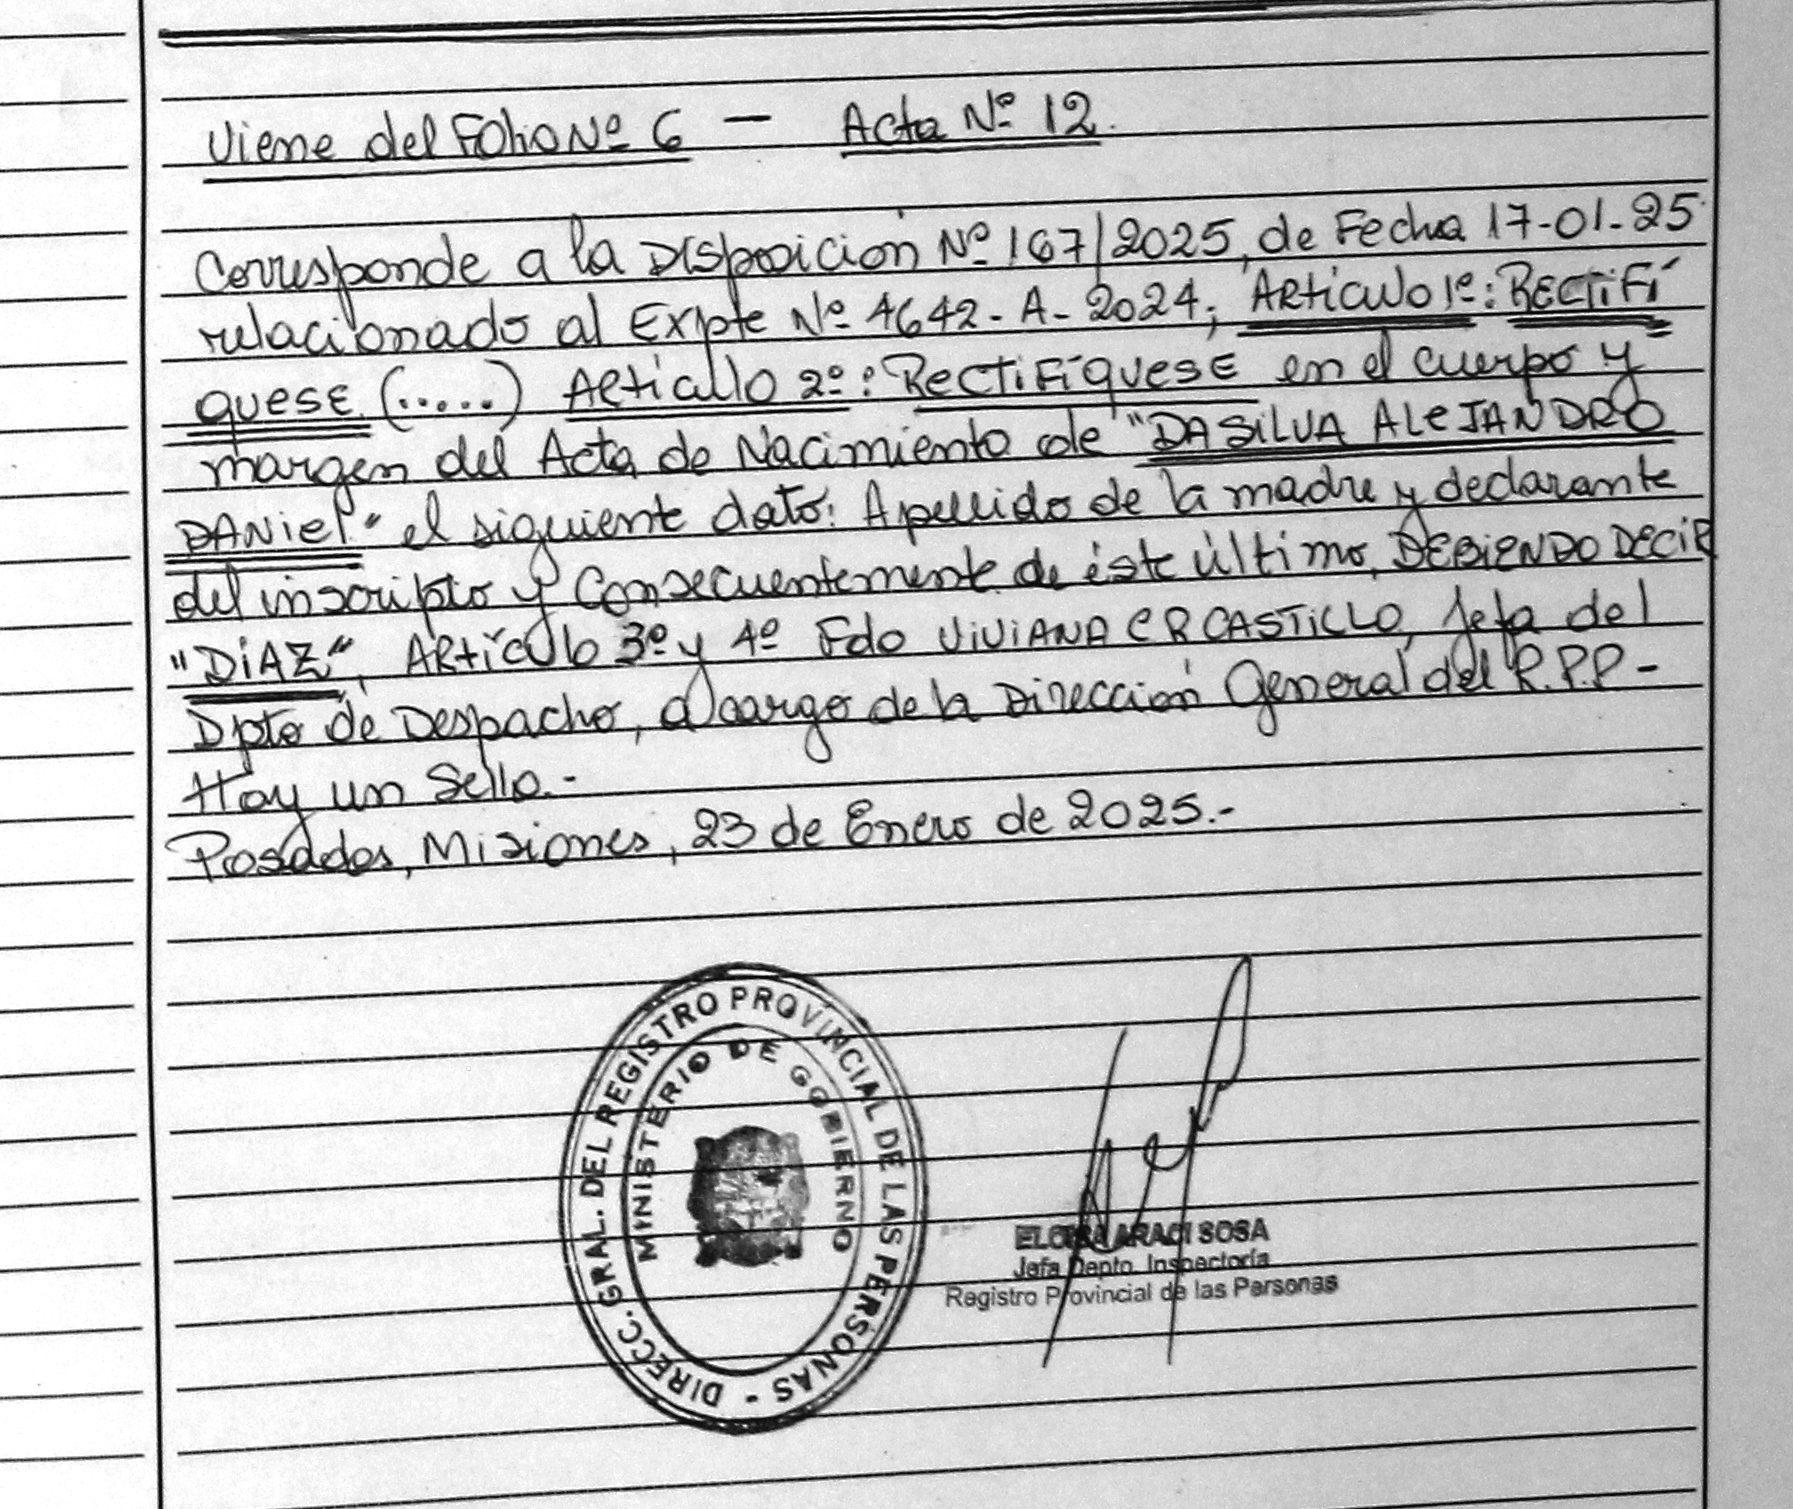 Viene del Folio Nº 6 — Acta Nº 12.
Corresponde a la Disposición Nº 167/2025, de Fecha 17-01-25
relacionado al Expte Nº 4642-A-2024, Artículo 1º: RECTIFÍ
QUESE (.....) Artículo 2º: RECTIFÍQUESE en el cuerpo y
margen del Acta de Nacimiento de "DASILVA ALEJANDRO
DANIEL" el siguiente dato: Apellido de la madre y declarante
del inscripto y Consecuentemente de éste último, DEBIENDO DECIR
"DÍAZ", Artículo 3º y 4º Fdo VIVIANA C R CASTILLO, Jefa del
Dpto de Despacho, a cargo de la Dirección General del R.P.P-
Hay un Sello.-
Posadas, Misiones, 23 de Enero de 2025.-
DIRECC. GRAL. DEL REGISTRO PROVINCIAL DE LAS PERSONAS -
MINISTERIO DE GOBIERNO
ELOISA ARACI SOSA
Jefa Depto. Inspectoría
Registro Provincial de las Personas